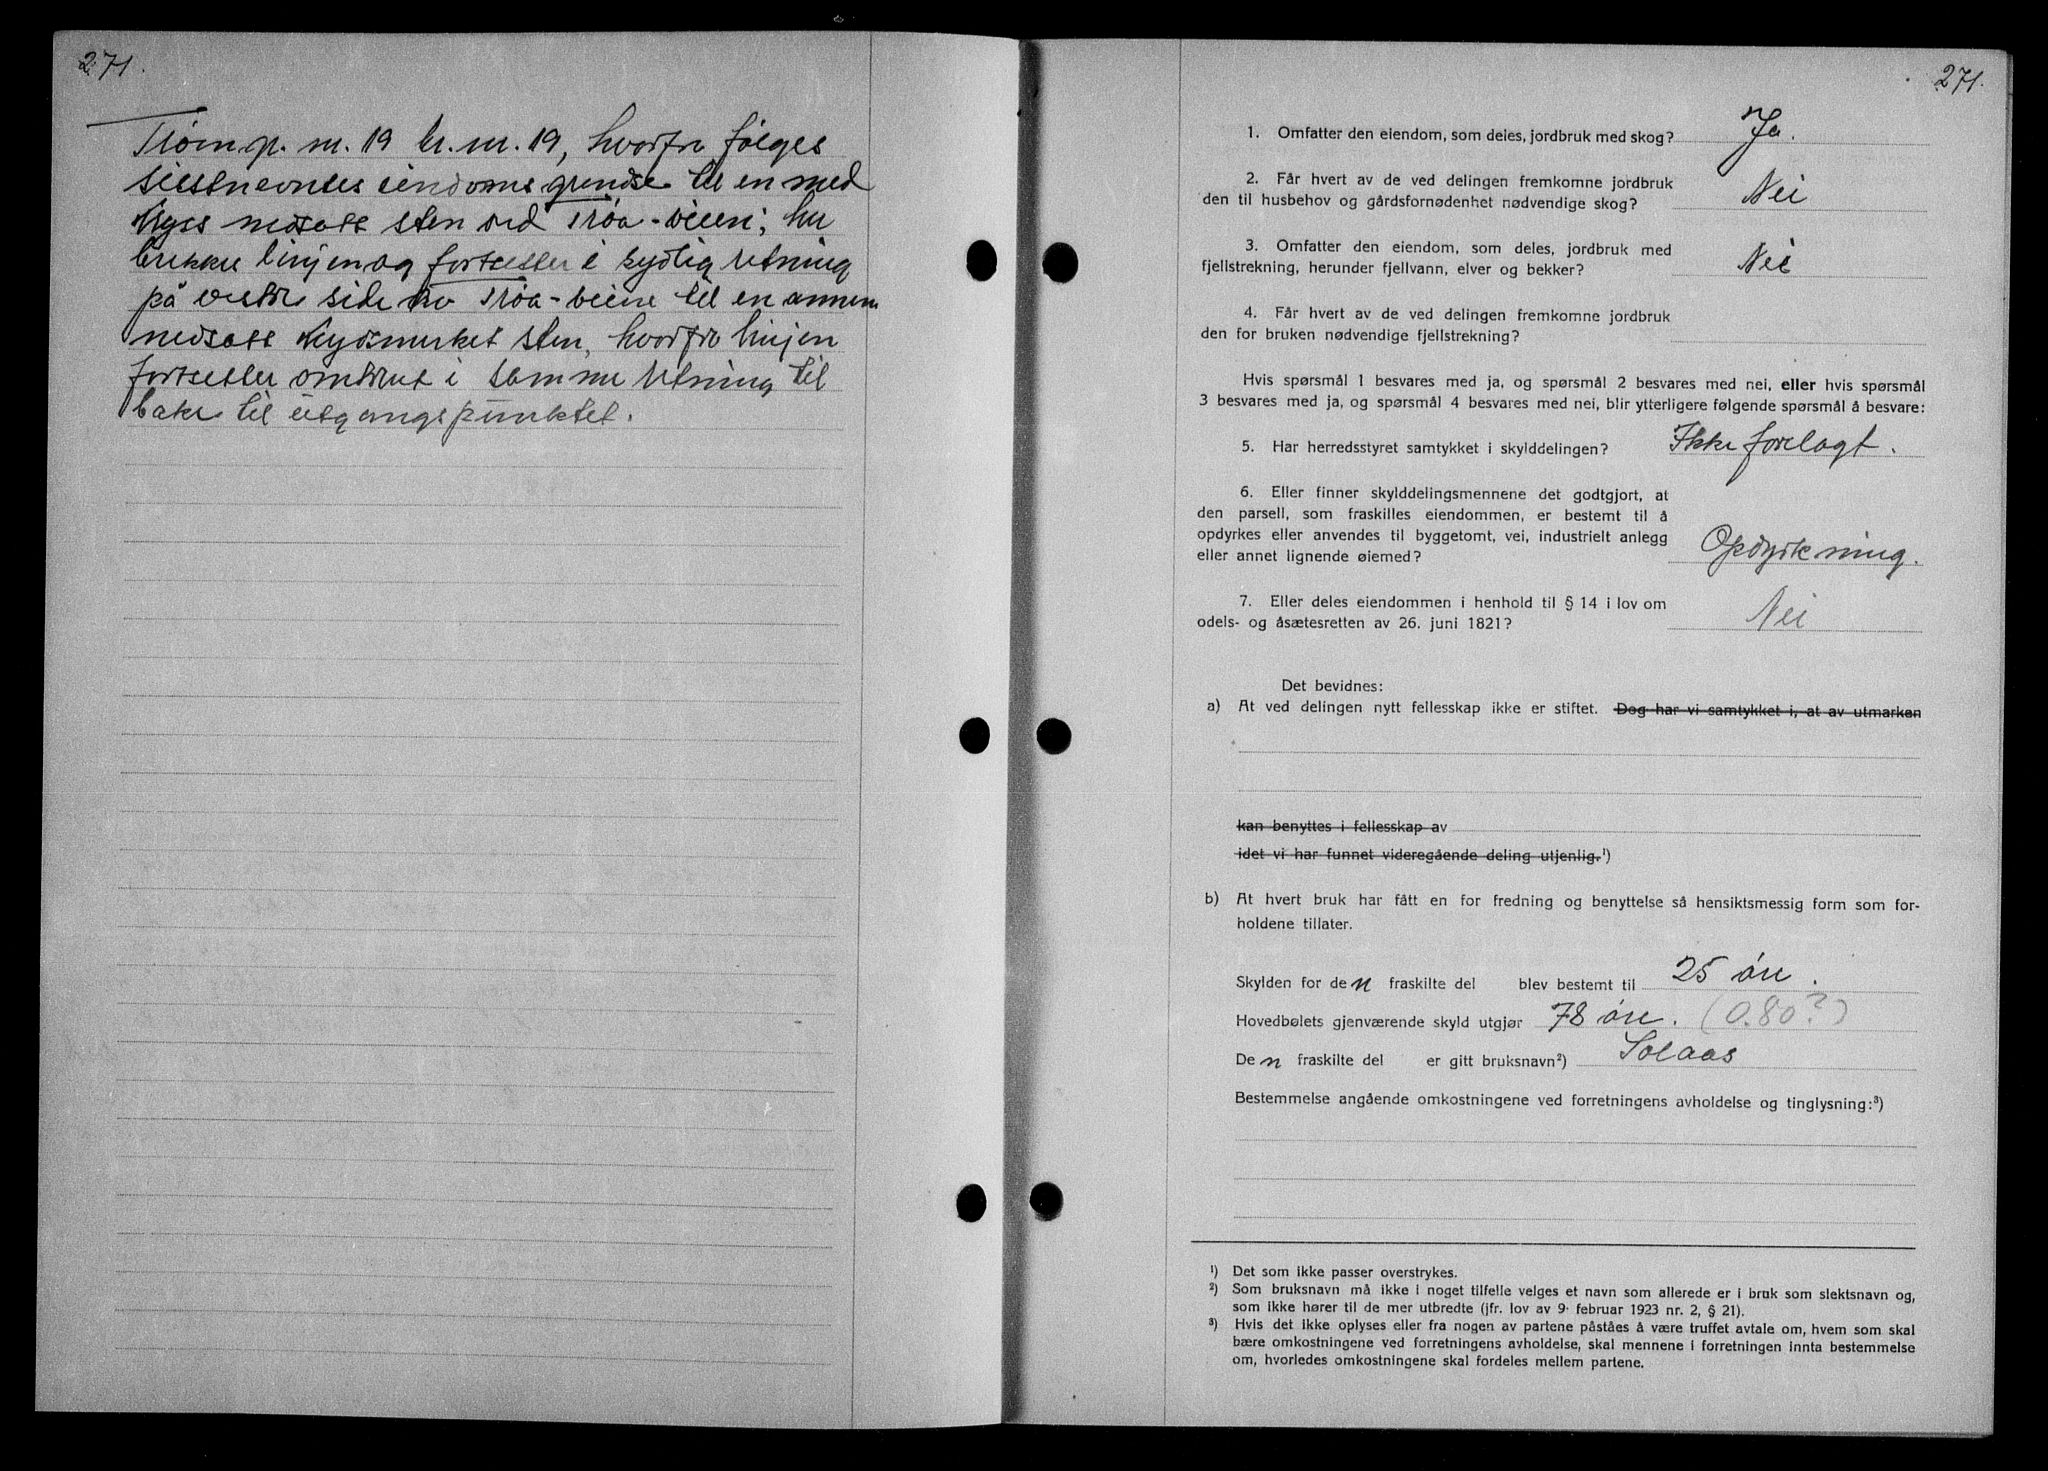 271.
Trøim g. nr. 19 br. nr. 19, hvorfra følges
sistnevntes eiendoms grense til en med
kryss nedsatt sten ved Trøa-veien; her
brekker linjen og fortsetter i sydlig retning
på vestre side av Trøa-veien til en annen
nedsatt krydsmerket sten, hvorfra linjen
fortsetter omtrent i samme retning til
bake til utgangspunktet.
271.
1. Omfatter den eiendom, som deles, jordbruk med skog? Ja.
2. Får hvert av de ved delingen fremkomne jordbruk
den til husbehov og gårdsfornødenhet nødvendige skog? Nei
3. Omfatter den eiendom, som deles, jordbruk med
fjellstrekning, herunder fjellvann, elver og bekker? Nei
4. Får hvert av de ved delingen fremkomne jordbruk
den for bruken nødvendige fjellstrekning?
Hvis spørsmål 1 besvares med ja, og spørsmål 2 besvares med nei, eller hvis spørsmål
3 besvares med ja, og spørsmål 4 besvares med nei, blir ytterligere følgende spørsmål å besvare:
5. Har herredsstyret samtykket i skylddelingen? Ikke forelagt.
6. Eller finner skylddelingsmennene det godtgjort, at
den parsell, som fraskilles eiendommen, er bestemt til å
opdyrkes eller anvendes til byggetomt, vei, industrielt anlegg
eller annet lignende øiemed? Opdyrkning.
7. Eller deles eiendommen i henhold til § 14 i lov om
odels- og åsætesretten av 26. juni 1821? Nei
Det bevidnes:
a) At ved delingen nytt fellesskap ikke er stiftet. Dog har vi samtykket i, at av utmarken
kan benyttes i fellesskap av
idet vi har funnet videregående deling utjenlig.¹)
b) At hvert bruk har fått en for fredning og benyttelse så hensiktsmessig form som for-
holdene tillater.
Skylden for den fraskilte del blev bestemt til 25 øre.
Hovedbølets gjenværende skyld utgjør 78 øre. (0.80?)
Den fraskilte del er gitt bruksnavn²) Solaas
Bestemmelse angående omkostningene ved forretningens avholdelse og tinglysning:³)
¹) Det som ikke passer overstrykes.
²) Som bruksnavn må ikke i noget tilfelle velges et navn som allerede er i bruk som slektsnavn og,
som ikke hører til de mer utbredte (jfr. lov av 9. februar 1923 nr. 2, § 21).
³) Hvis det ikke oplyses eller fra nogen av partene påståes å være truffet avtale om, hvem som skal
bære omkostningene ved forretningens avholdelse, skal mennene i forretningen innta bestemmelse
om, hvorledes omkostningene skal fordeles mellem partene.